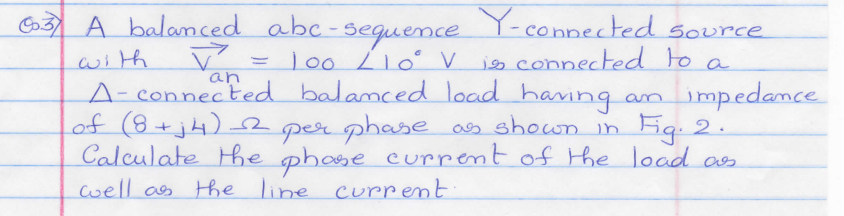 Q.3) A balanced abc-sequence Y-connected source
with V⃗an = 100 ∠10° V is connected to a
Δ-connected balanced load having an impedance
of (8+j4) Ω per phase as shown in Fig. 2.
Calculate the phase current of the load as
well as the line current.